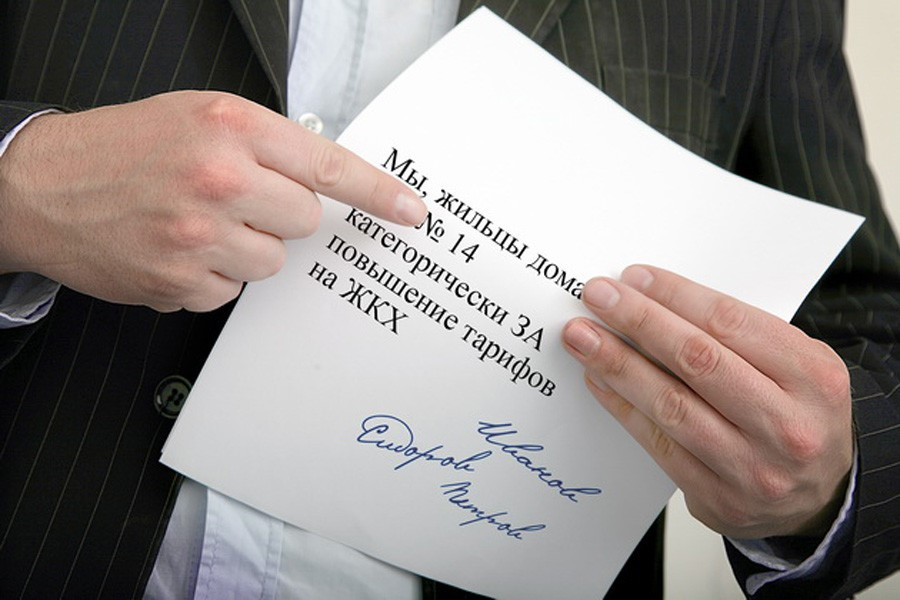 Мы, жильцы дома
№ 14
категорически ЗА
повышение тарифов
на ЖКХ
Иванов
Сидоров
Петров